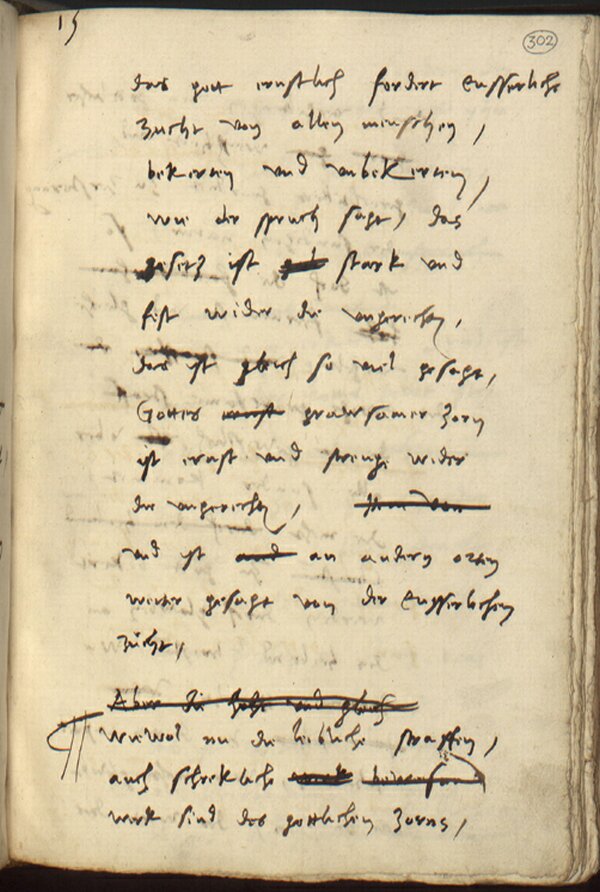 15
302
das gott ernstlich fordert eusserliche
zucht von allen menschen,
bekerten und unbekerten,
wie der spruch sagt, das
gesetz ist stark und
fest wider die ungerechten,
das ist gleich so viel gesagt,
Gottes ernst grawsamer zorn
ist ernst und strenge wider
die ungerechten, Item von
und ist auch an andern orten
weiter gesagt von der eusserlichen
zucht,
Aber die hohe und gleich
wiewol nu die leibliche straffen,
auch schrekliche werk
werk sind des gottlichen zorns,